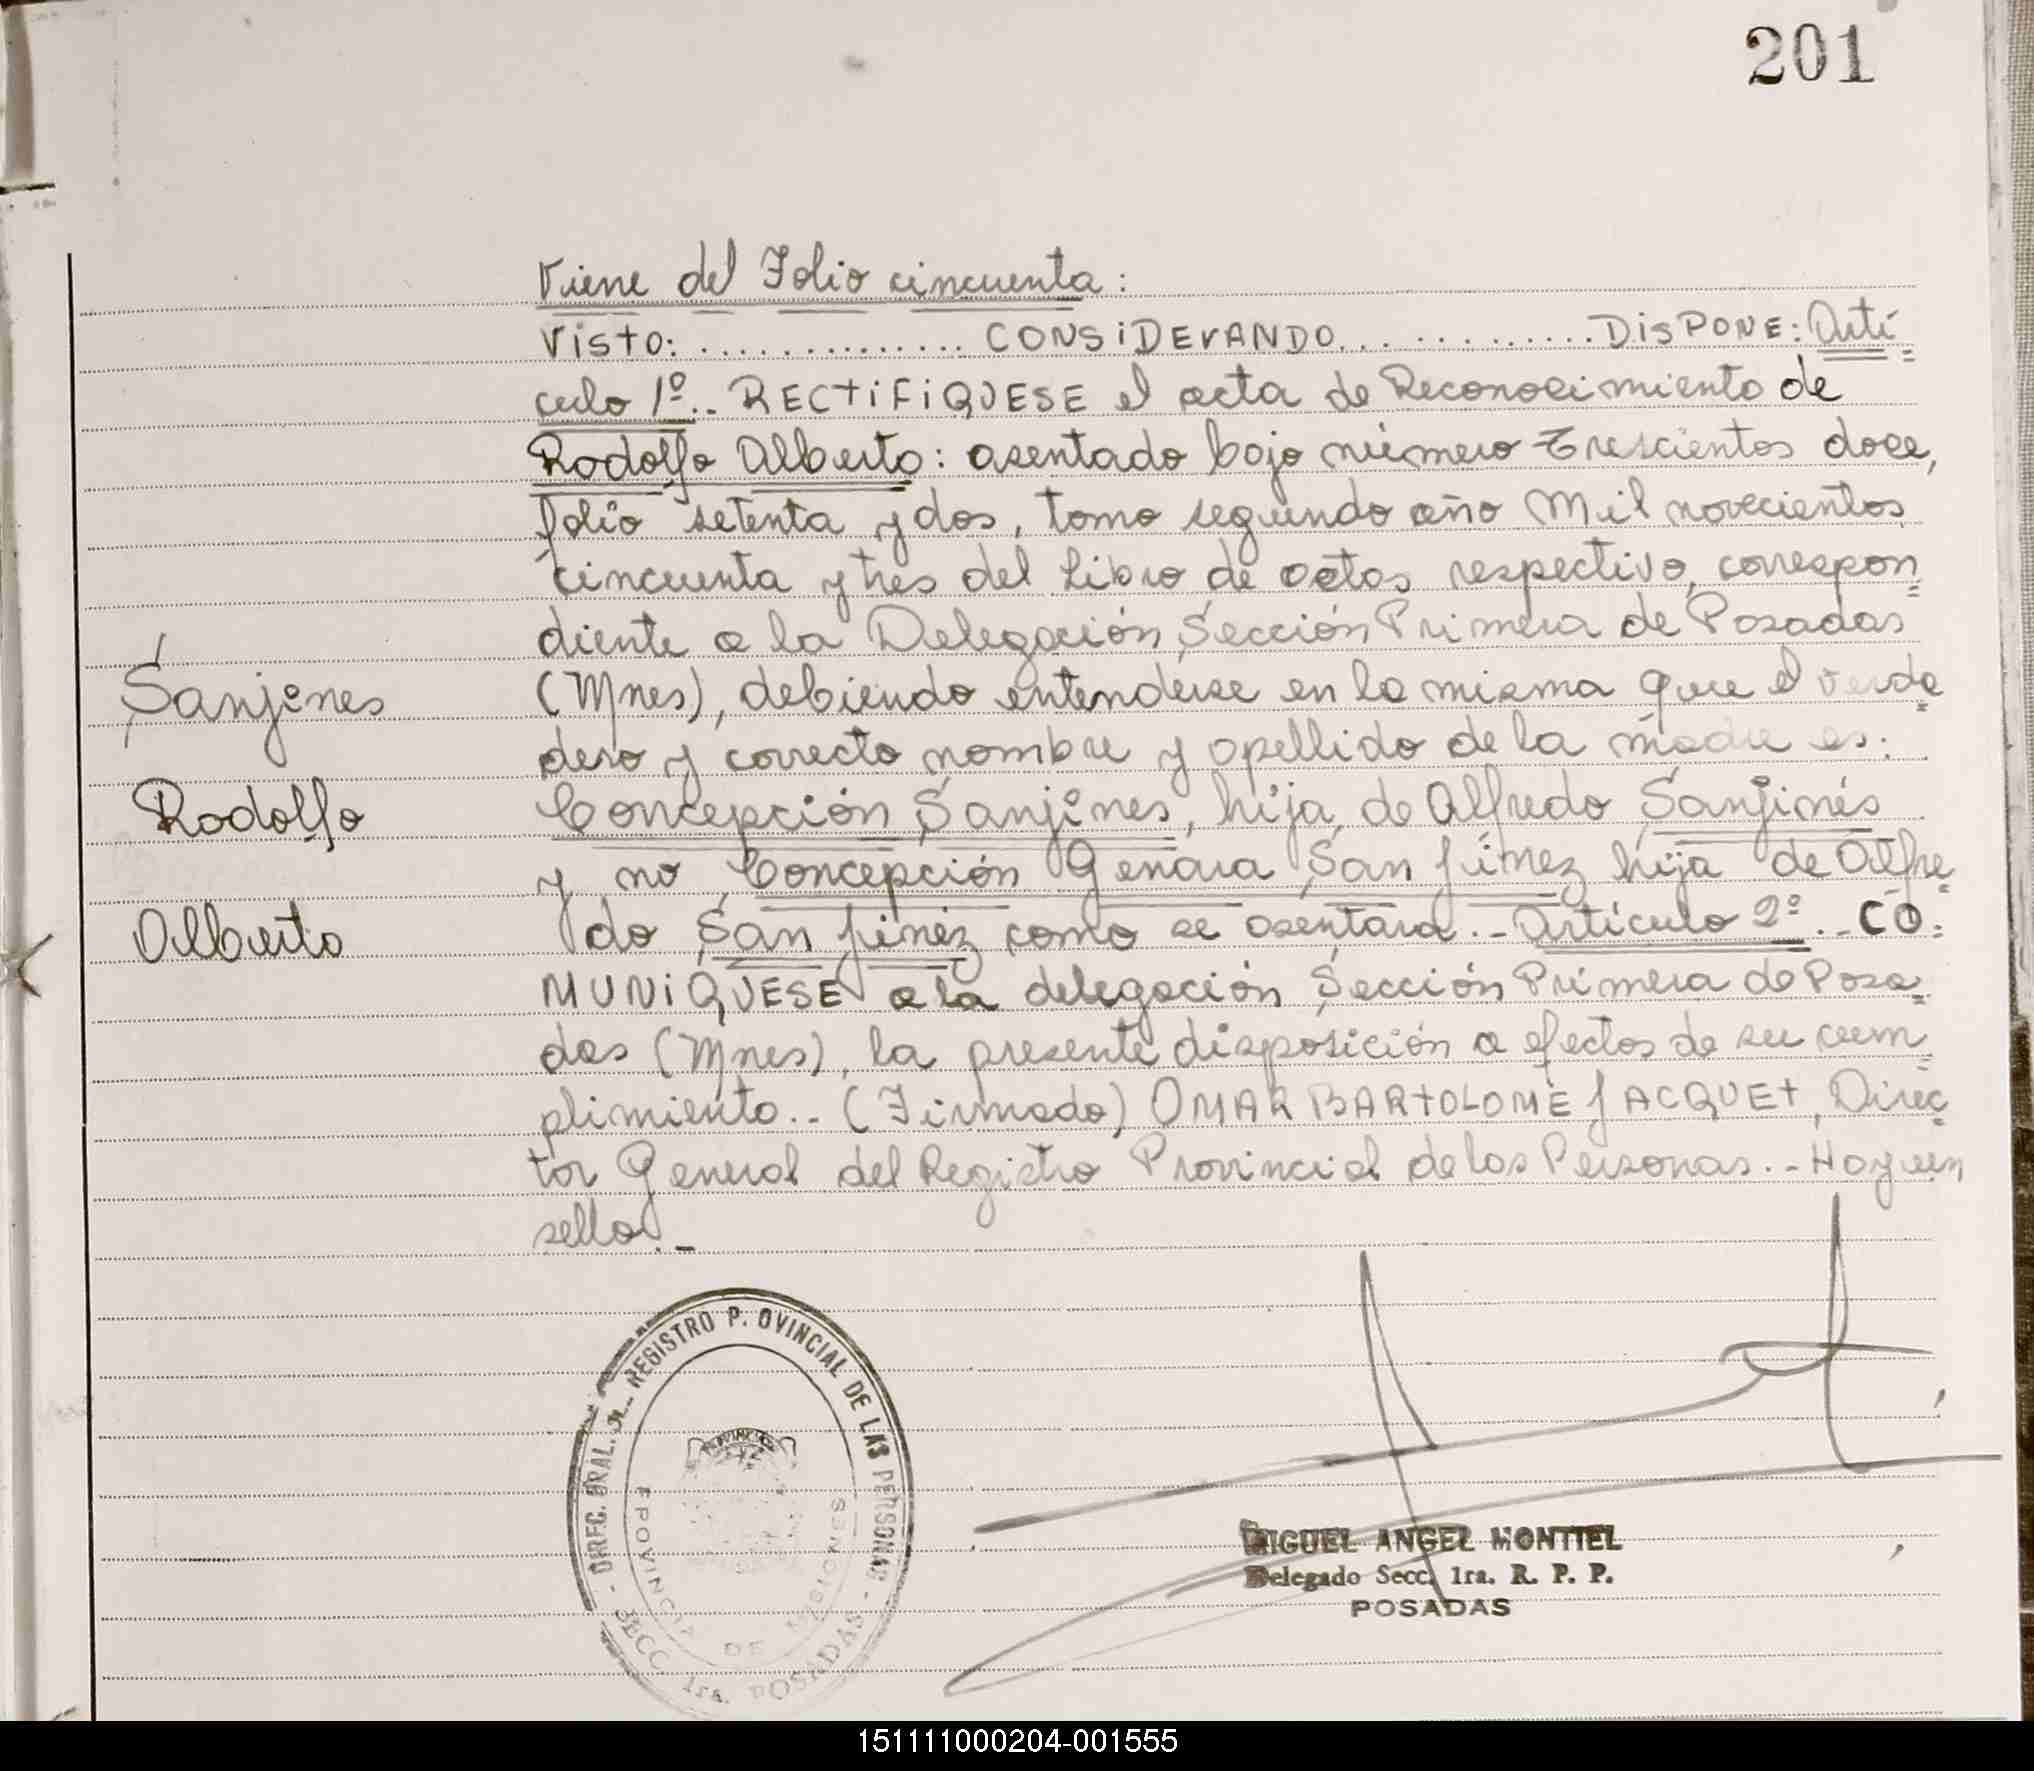 201
Viene del Folio cincuenta:
Visto: .............. CONSIDERANDO............ DISPONE: Artí=
culo 1º.- RECTIFIQUESE el acta de Reconocimiento de
Rodolfo Alberto: asentado bajo número Trescientos doce,
folio setenta y dos, tomo segundo año Mil novecientos
cincuenta y tres del Libro de actas respectivo, correspon=
diente a la Delegación Sección Primera de Posadas
Sanjines (Mnes), debiendo entenderse en la misma que el verda=
dero y correcto nombre y apellido de la madre es:
Rodolfo Concepción Sanjines, hija de Alfredo Sanjinés
y no Concepción Genara San Jinez hija de Alfre=
Alberto do San Jinéz como se asentara.- Artículo 2º.- CO=
MUNIQUESE a la delegación Sección Primera de Posa=
das (Mnes), la presente disposición a efectos de su cum=
plimiento.- (Firmado) OMAR BARTOLOMÉ JACQUET, Direc=
tor General del Registro Provincial de las Personas.- Hay un
sello.-
DIREC. GRAL. REGISTRO P. OVINCIAL DE LAS PERSONAS
PROVINCIA DE MISIONES
SECC. 1ra. POSADAS
MIGUEL ANGEL MONTIEL
Delegado Secc. 1ra. R. P. P.
POSADAS
151111000204-001555